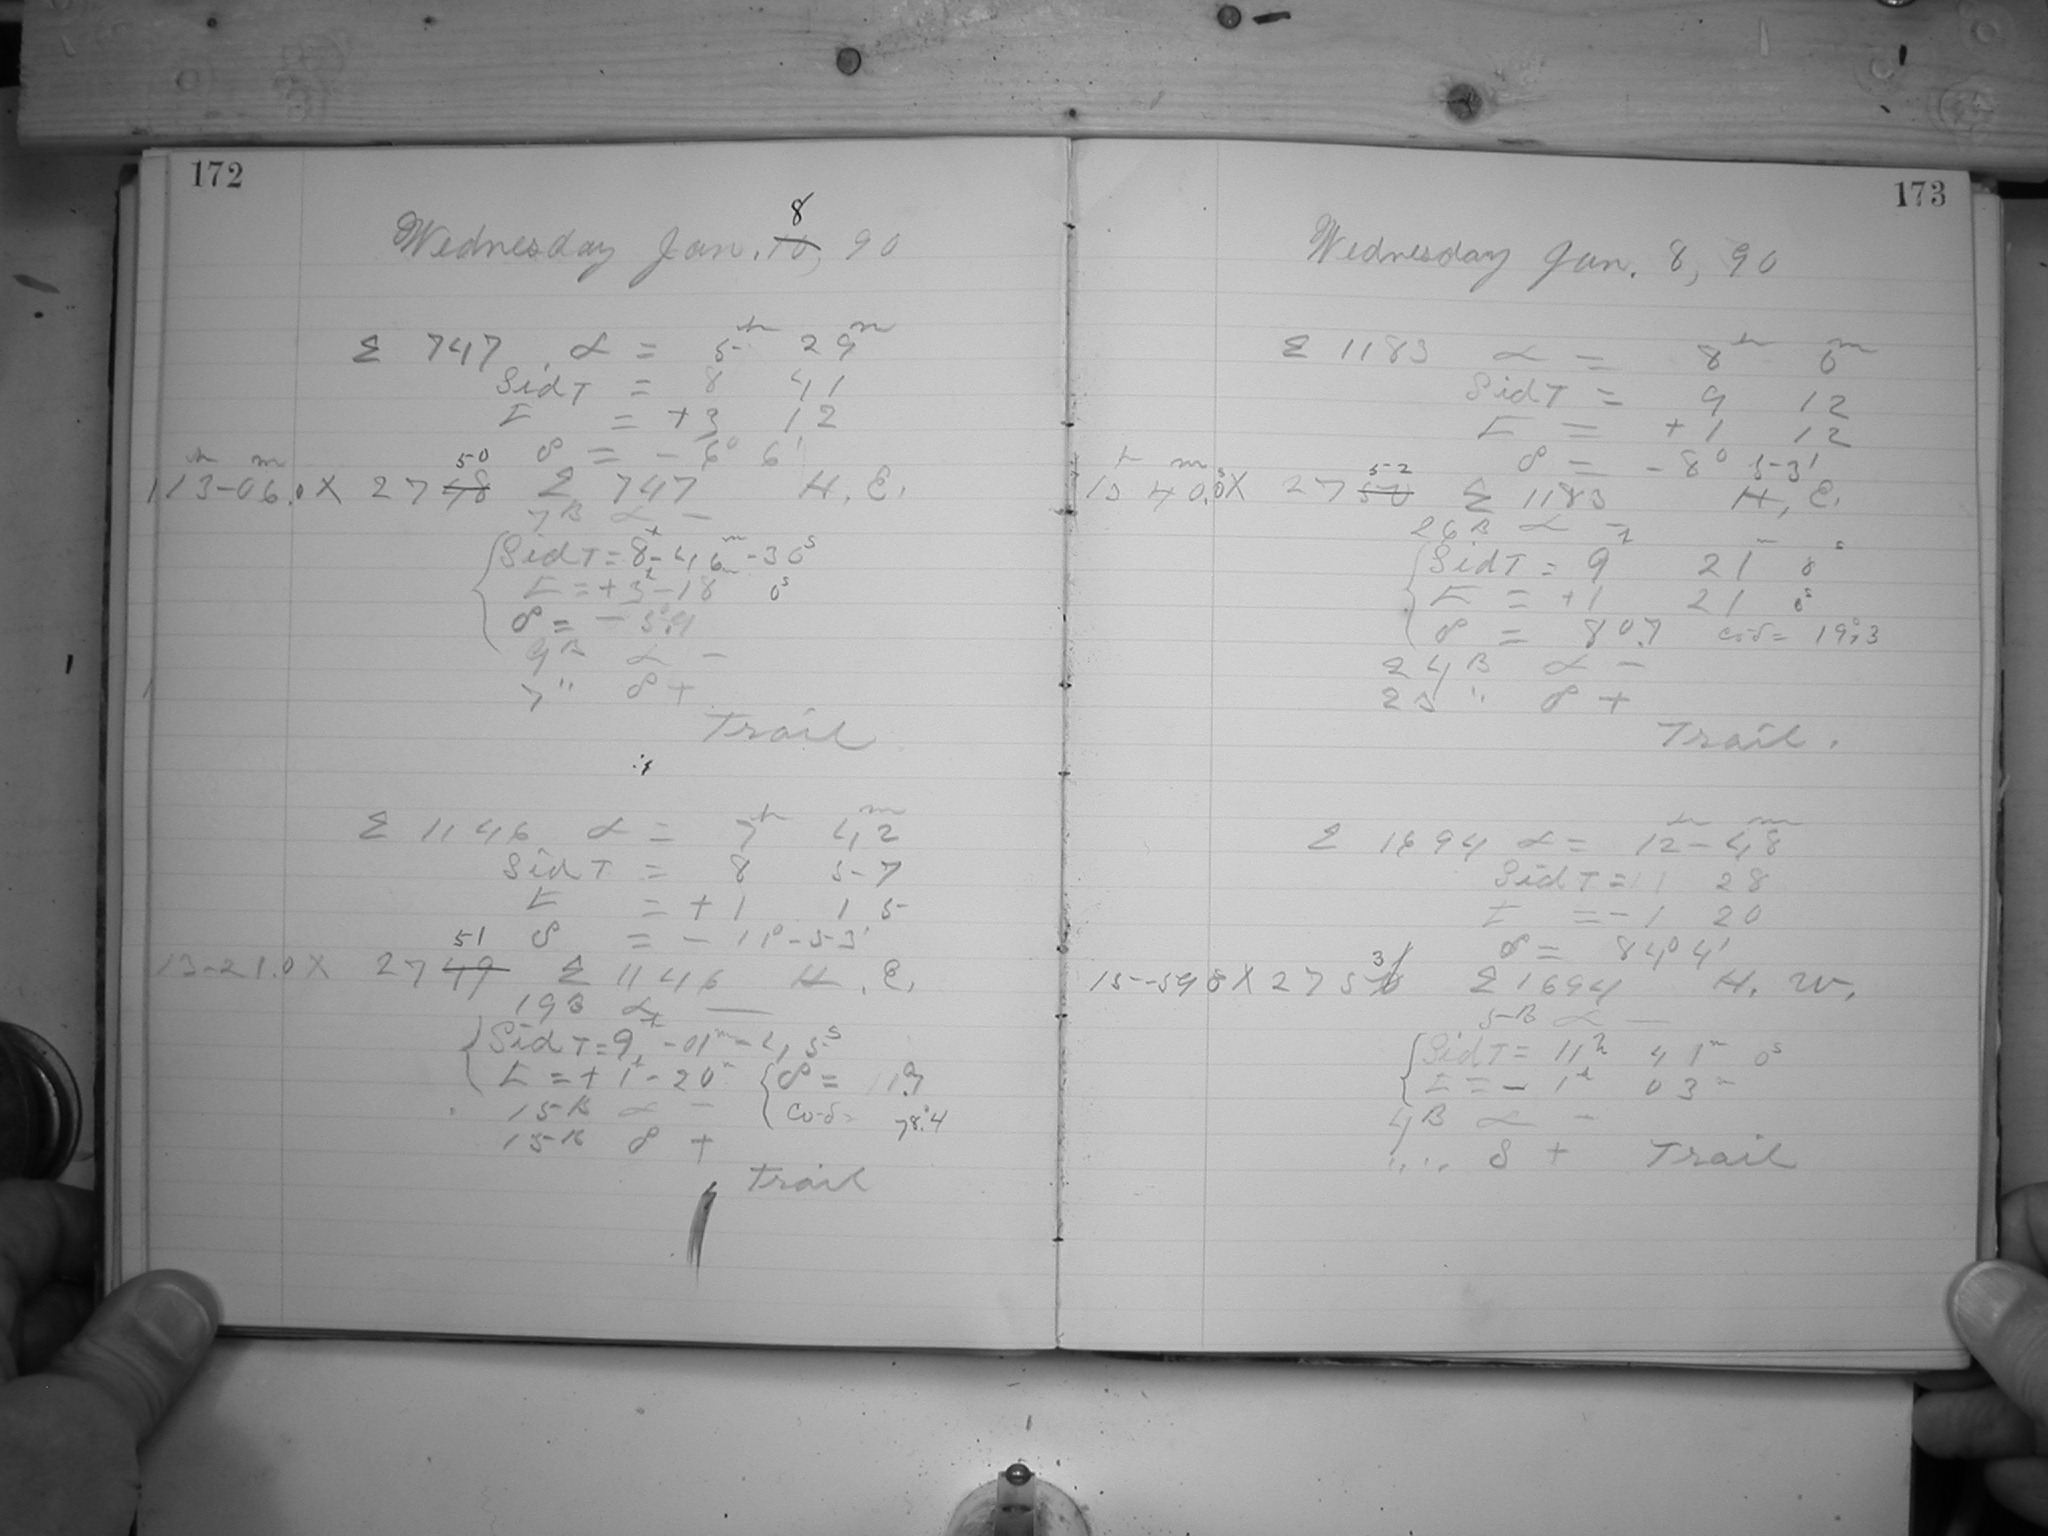 172
8
Wednesday Jan. 10, 90
Σ 747, α = 5h 29m
Sid T = 8 41
t = +3 12
50 δ = -6° 6'
h m
13-06.0 X 2748 Σ 747 H. E.
7B α -
Sid T = 8h-46m-30s
t = +3h-18m 0s
δ = -5°.9
9B α -
7 " δ +
Trail
Σ 1146 α = 7h 42m
Sid T = 8 57
t = +1 15
51 δ = -11°-53'
13-21.0 X 2749 Σ 1146 H. E.
19B α -
Sid T = 9h-01m-45s
t = +1h-20m δ = 11.7
15B α - co-δ = 78.4
15B δ +
Trail
173
Wednesday Jan. 8, 90
Σ 1183 α = 8h 0m
Sid T = 9 12
t = +1 12
52 δ = -8° 53'
h m s
13 40.0 X 2750 Σ 1183 H, E.
26B α -
Sid T = 9h 21m 8s
t = +1 21 0s
δ = 8°.7 co-δ = 19.3
24B α -
25 " δ +
Trail.
Σ 1694 α = 12h-48m
Sid T = 11 28
t = -1 20
3 δ = 84° 4'
15-59.8 X 2750 Σ 1694 H. W.
5B α -
Sid T = 11h 41m 0s
t = -1h 03m
4B α -
" " δ + Trail